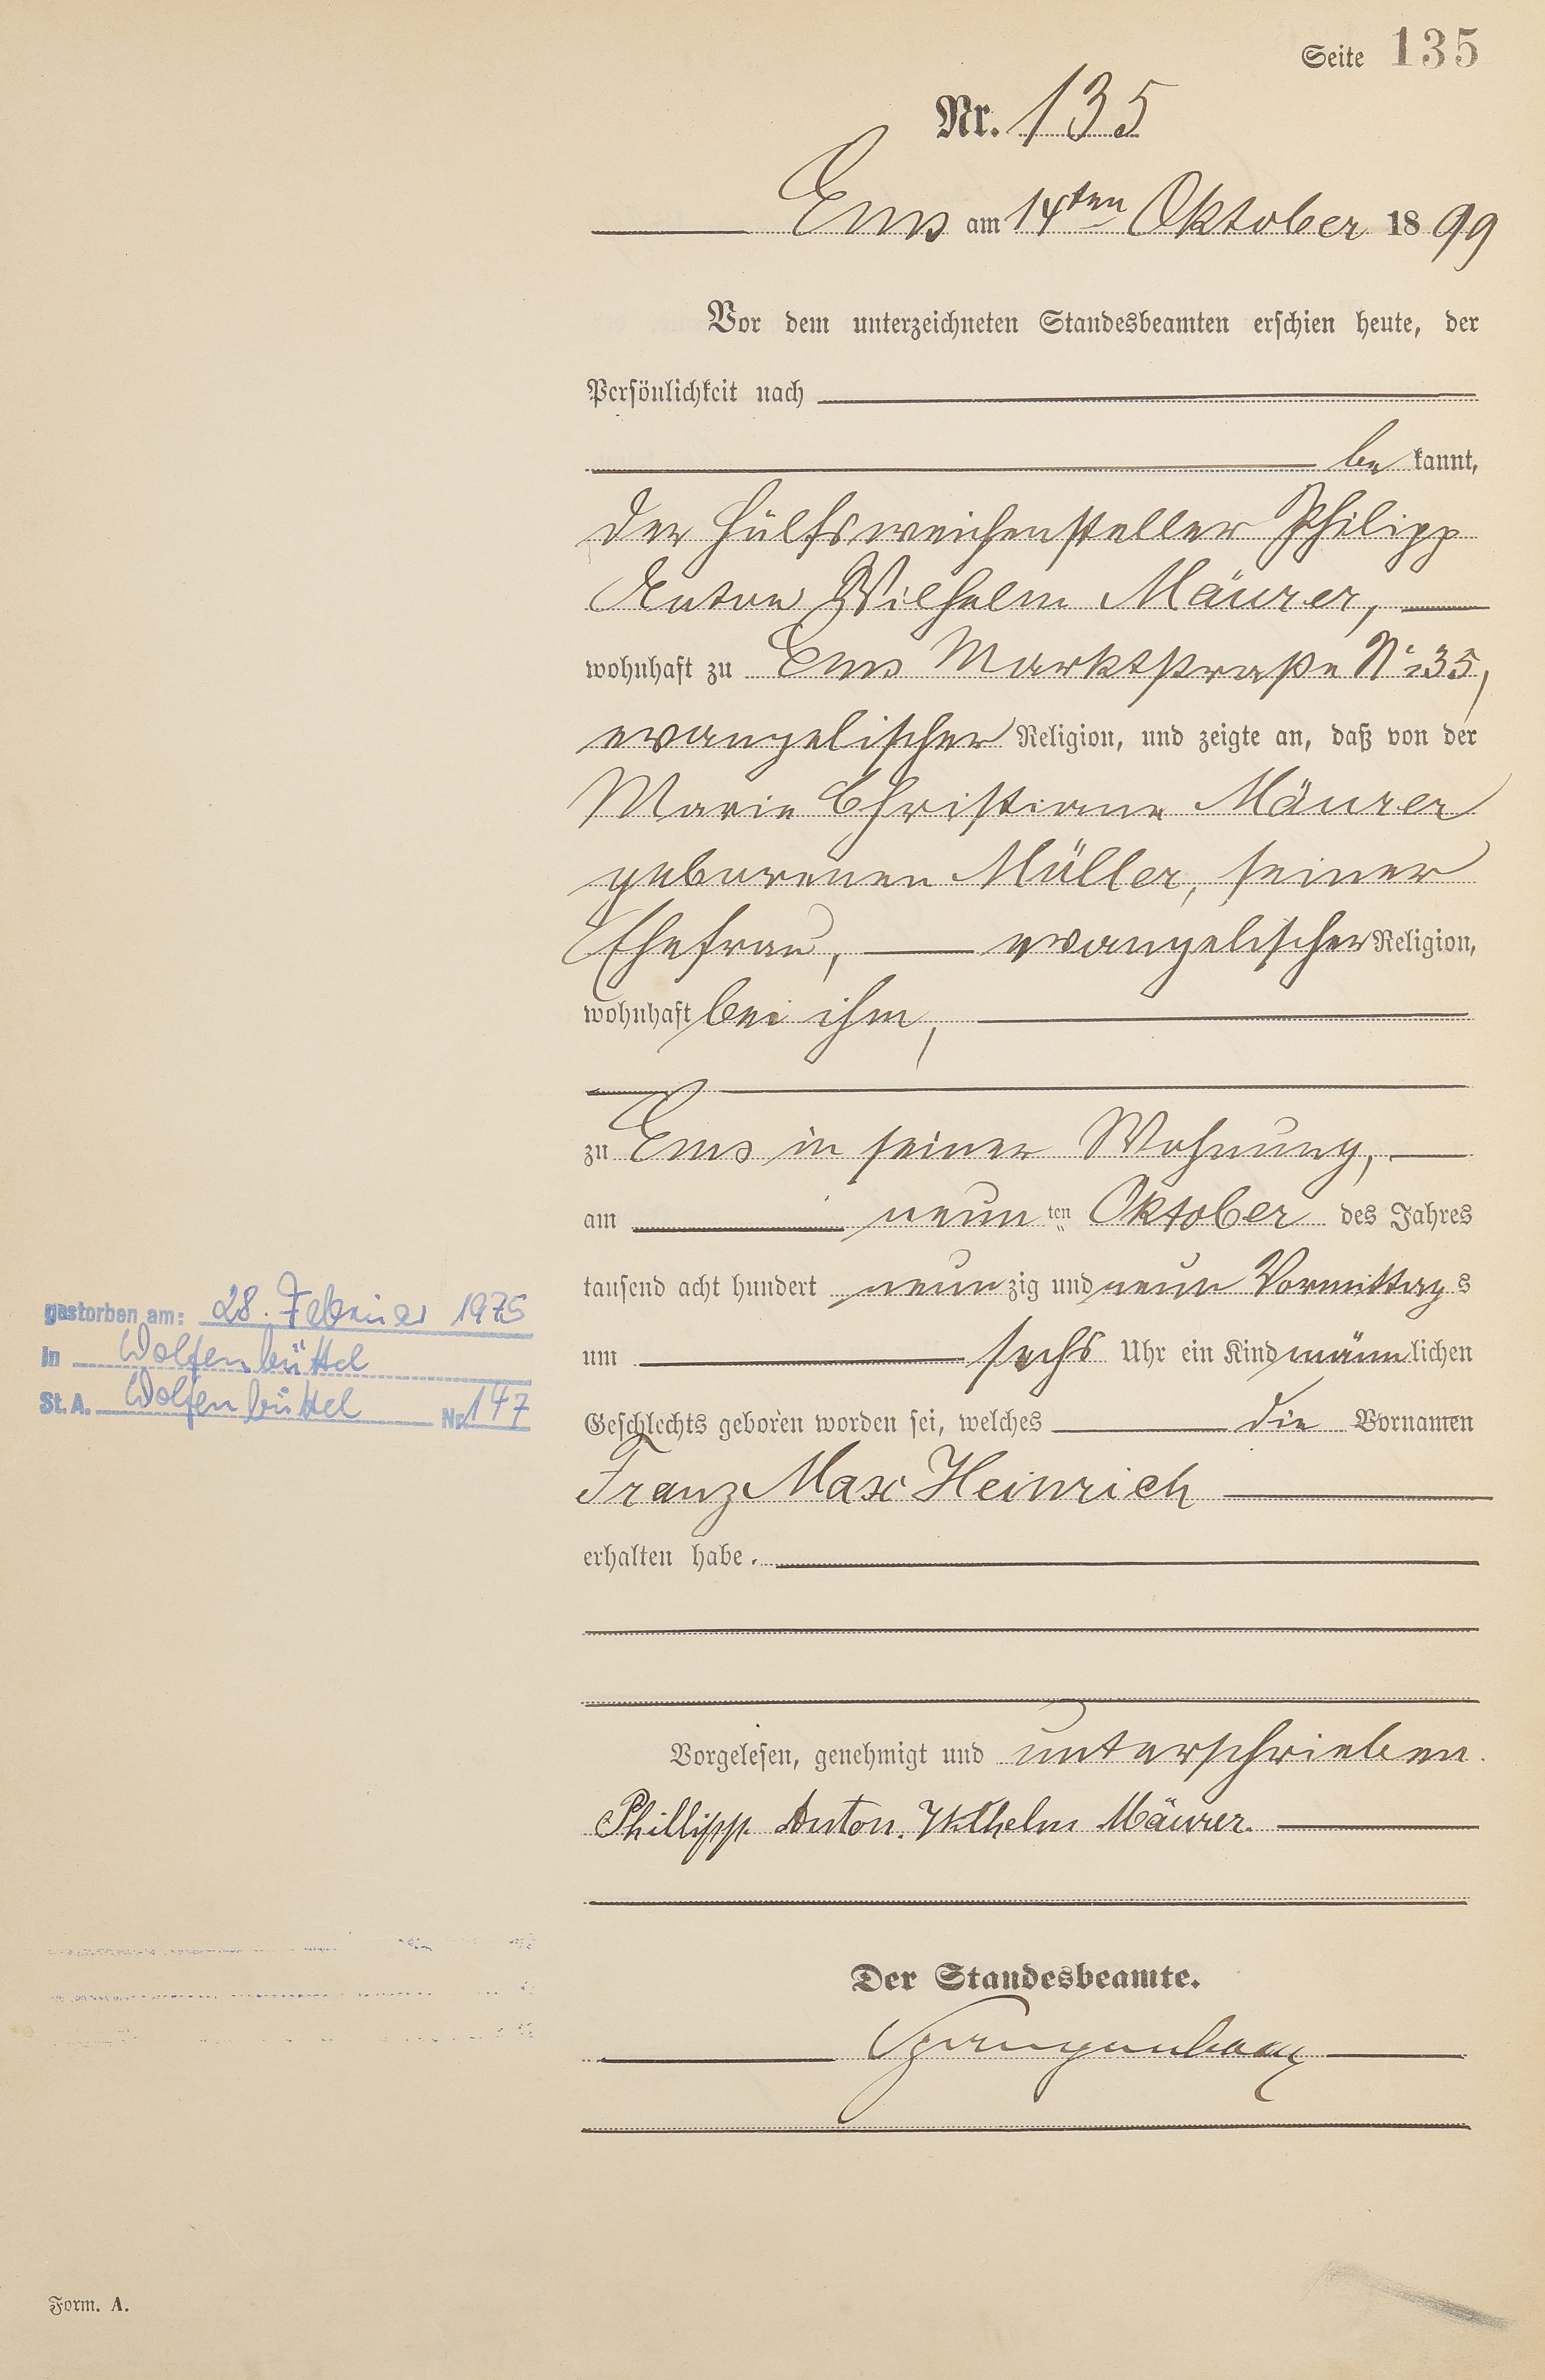 Seite 135
Nr. 135
Ems am 14ten Oktober 1899
Vor dem unterzeichneten Standesbeamten erschien heute, der
Persönlichkeit nach
be kannt,
der Hülfsweichensteller Philipp
Anton Wilhelm Mäurer,
wohnhaft zu Ems Marktstraße No 35,
evangelischer Religion, und zeigte an, daß von der
Marie Christiane Mäurer
geborenen Müller, seiner
Ehefrau, evangelischer Religion,
wohnhaft bei ihm,
zu Ems in seiner Wohnung,
am neun ten Oktober des Jahres
tausend acht hundert neunzig und neun Vormittags
um sechs Uhr ein Kind männlichen
Geschlechts geboren worden sei, welches die Vornamen
Franz Max Heinrich
erhalten habe.
Vorgelesen, genehmigt und unterschrieben.
Phillipp Anton. Wilhelm Mäurer.
Der Standesbeamte.
gestorben am: 28. Februar 1975
in Wolfenbüttel
St. A. Wolfenbüttel Nr. 147
Form. A.